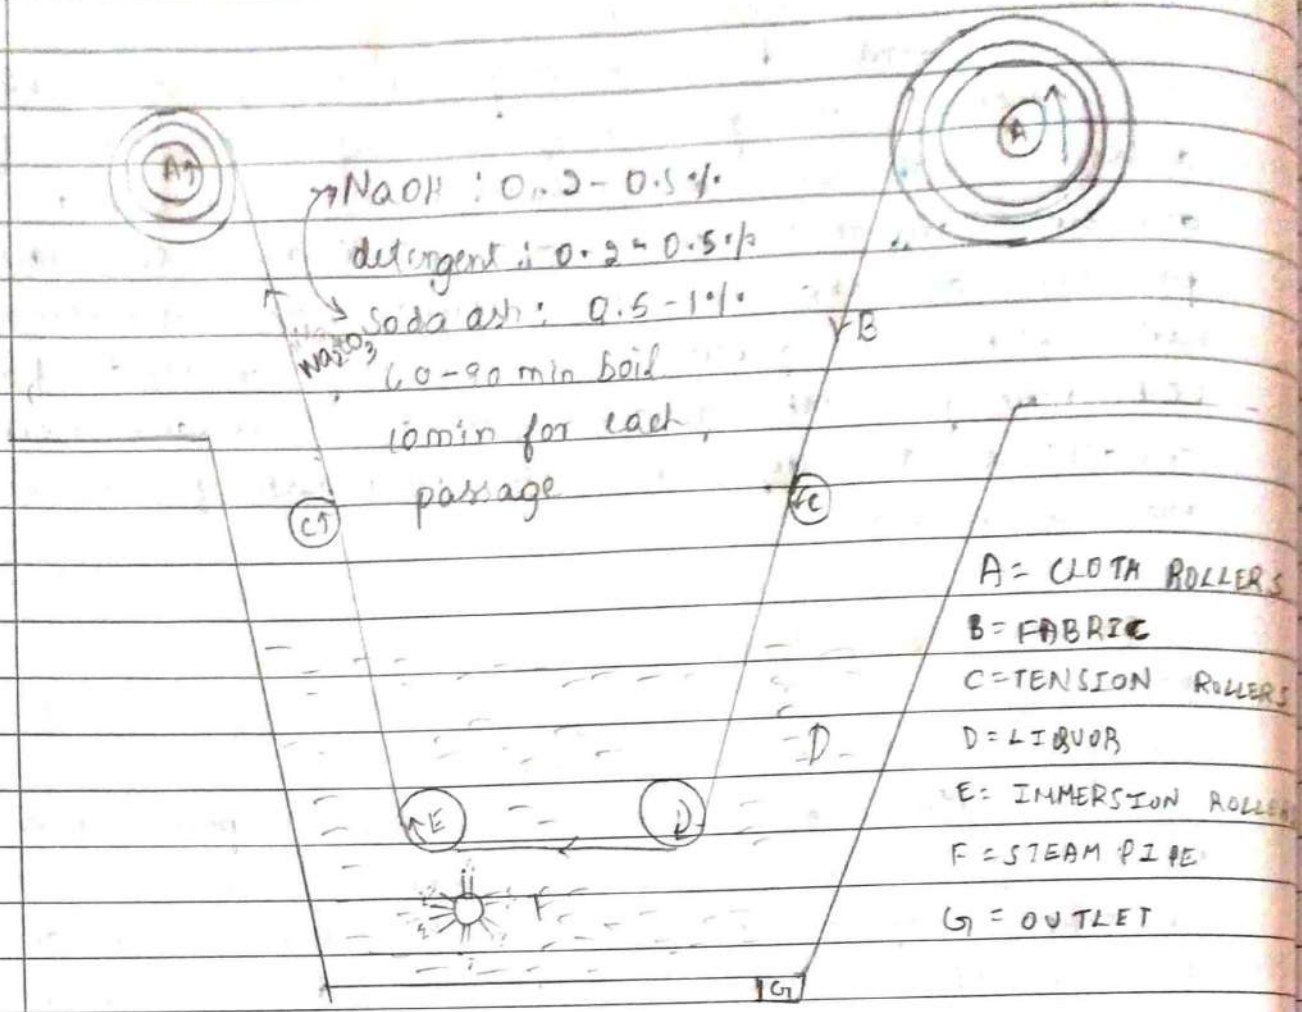 A
A
NaOH : 0.2 - 0.5 %
detergent : 0.2 - 0.5 %
Soda ash : 0.5 - 1 %
Na2CO3
60-90 min boil
10 min for each
passage
B
C
C
A = CLOTH ROLLERS
B = FABRIC
C = TENSION ROLLERS
D
D = LIQUOR
E
E = IMMERSION ROLLER
F = STEAM PIPE
F
G = OUTLET
G